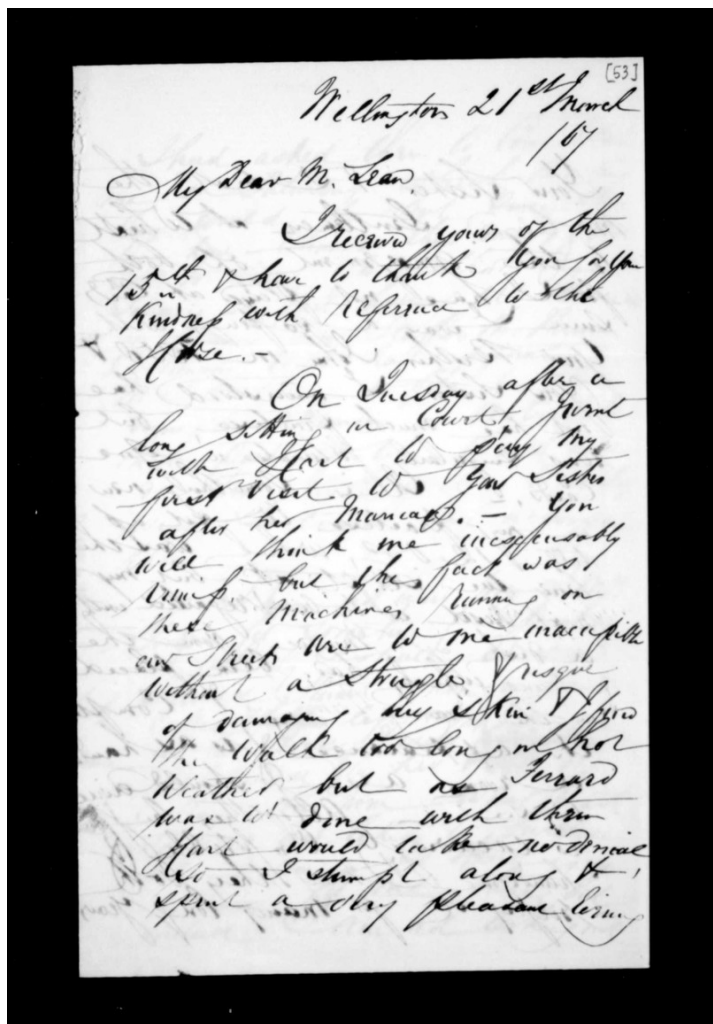 [53]
Wellington 21st March
/67
My Dear McLean,
I received yours of the
15th & have to thank you for your
kindness with reference to the
House. —
On Tuesday after a
long sitting in Court I went
with Hart to pay my
first visit to your Sister
after her Marriage. — You
will think me inexcusably
remiss. but the fact was
these Machines running on
our Streets are to me inaccessible
without a struggle & risque
of damaging my skin & I find
the walk too long in hot
weather but as Ferrard
was to dine with them
Hart would take no denial
so I stumpt along &
spent a very pleasant Evening